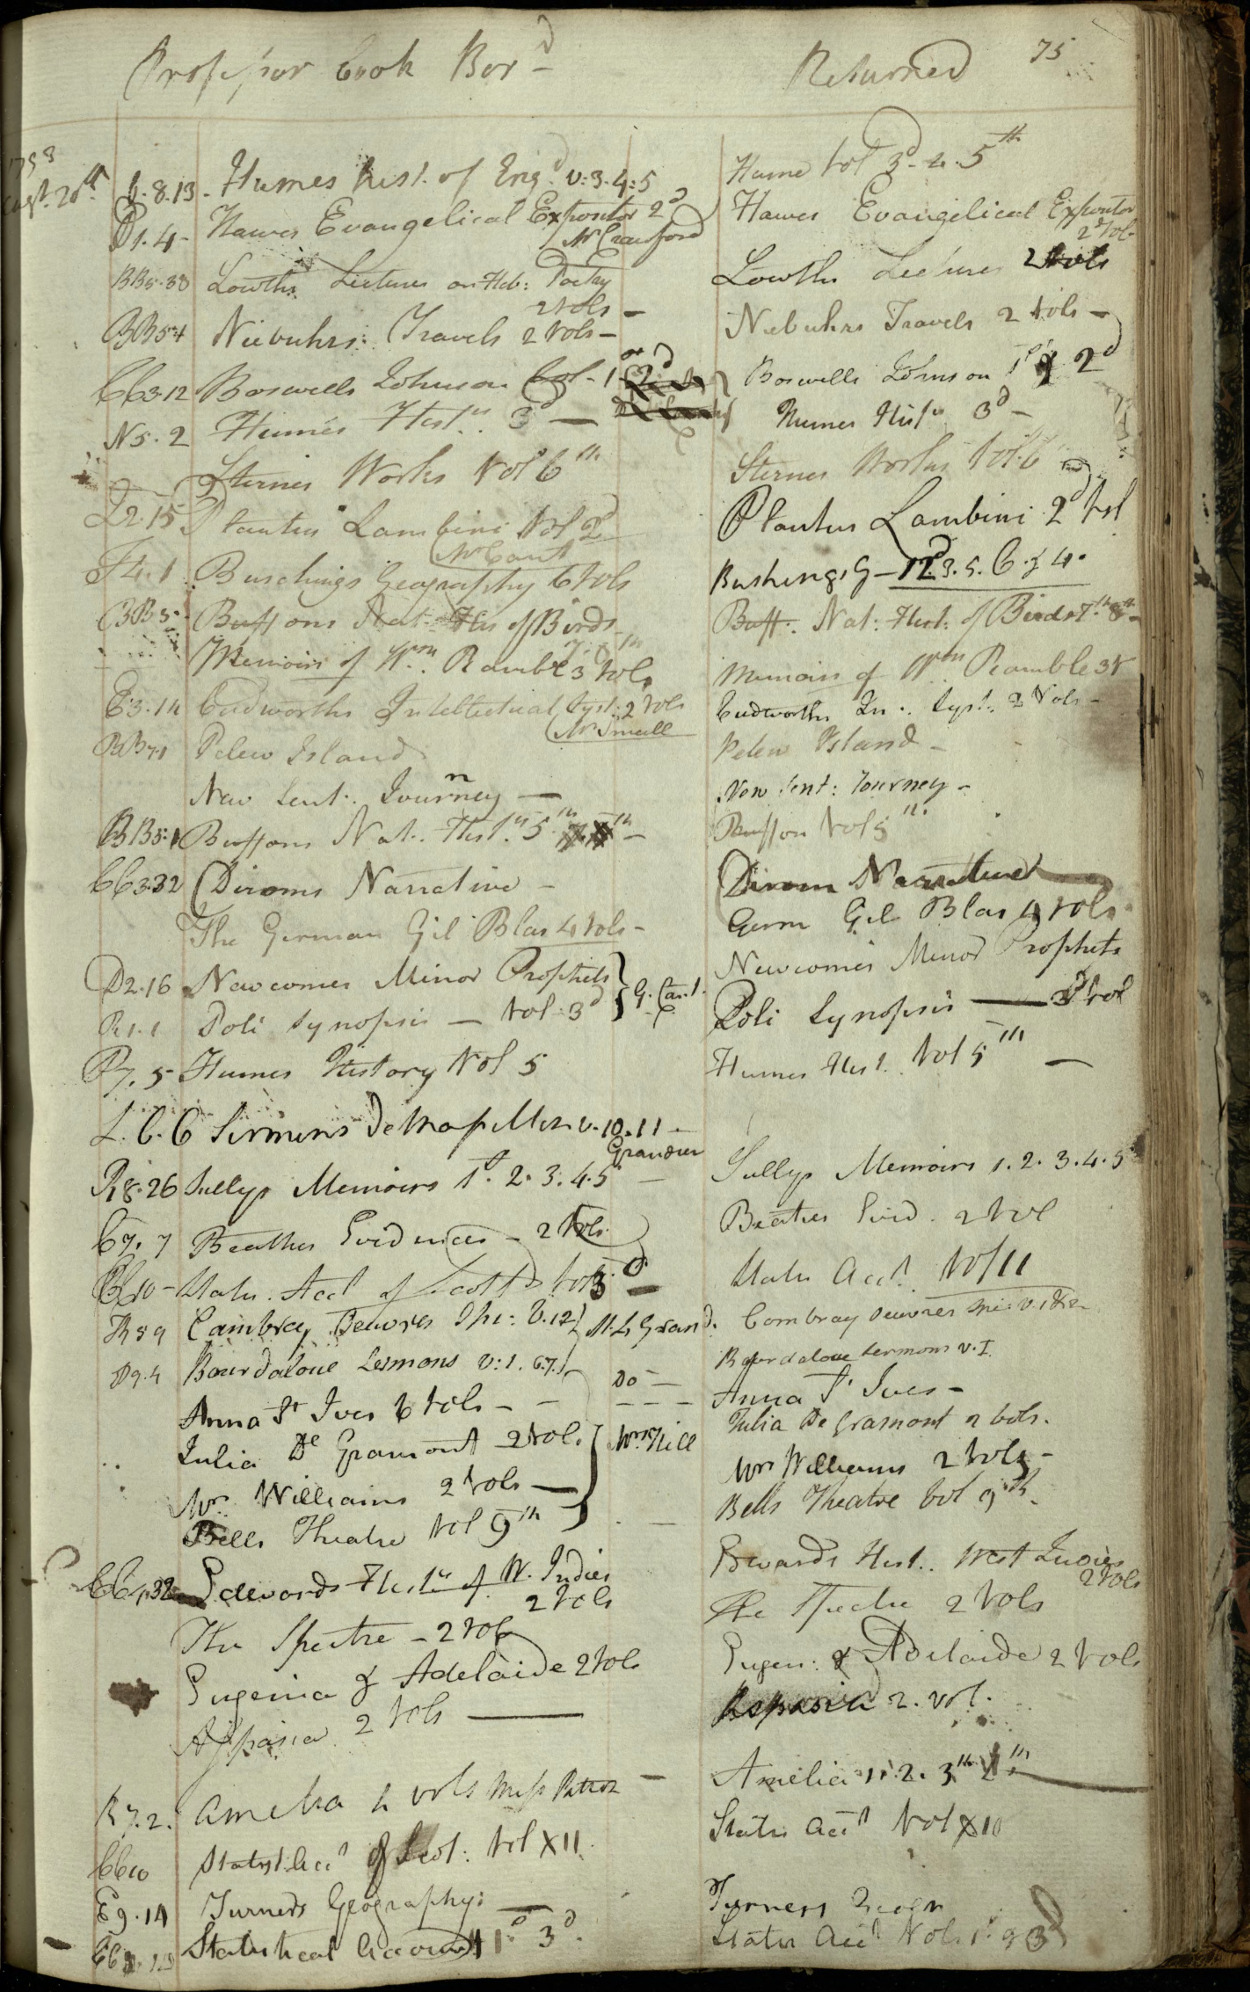 Professor Cook Bor^d Returned 75
Aug^t. 20^th 6.8.13 - Humes hist. of Eng^d v: 3. 4: 5 Hume vol 3^d. 4. 5^th
D1.4 - Hawes Evangelical Expositor 2^d Hawes Evangelical Expositor
M^r Crawford 2^d vol
BB5.33 Lowths Lectures on Heb: Poetry Lowths Lectures 2 vols
2 vols -
BB54 Niebuhrs Travels 2 vols - Niebuhrs Travels 2 vols -
CC3.12 Boswells Johnson vol - 1 2^d Boswells Johnson 1^st & 2^d
N5.2 Humes Hist^y. 3^d — Humes Hist^y 3^d -
Sternes Works vol 6^th Sternes Works vol. 6
I2.15 Plautus Lambini vol 2^d Plautus Lambini 2^d vol
M^r Cant
F4.1 Buschings Geography 6 vols Bushings G - 1 2^d. 3. 5. 6 & 4.
BB5 - Buffons Nat: His of Birds Buff. Nat: Hist: of Birds 7^th 8^th -
Memoirs of W^m. Ramble 3 vols Memoirs of W^m Ramble 3 v
E3.14 Cudworths Intellectual Syst: 2 vols Cudworths In. Syst. 2 vols -
M^r Smeall
BB71 Pelew Island Pelew Island -
New Sent. Journey — New Sent: Journey -
BB5.1 Buffons Nat. Hist. 5^th - Buffon vol 5^th.
CC3.32 Diroms Narrative - Dirom Narrative
The German Gil Blas 4 vols - Germ Gil Blas 4 vols
D2.16 Newcomes Minor Prophets } G. Cant. Newcomes Minor Prophets
R1.1 Poli Synopsis — vol. 3^d Poli Synopsis — 3^d vol
P7.5 Humes History Vol 5 Humes Hist. vol 5^th —
L.6.6 Sermons de Massillon v. 10. 11 -
Grandeur
R8.26 Sullys Memoirs 1^st. 2. 3. 4. 5 — Sullys Memoirs 1. 2. 3. 4. 5
C7.7 Beatties Evidences - 2 vols Beatties Evid. 2 vol
CC10 - Statis. Acct of Scotl^d vol Statis Acc^t. vol 11
R89 Cambray Oeuvres Spi: V. 12 } M. Le Grand. Cambray Oeuvres Spi: v. 1 & 2
D9.4 Bourdaloue Sermons v: 1. 6. 7. } Do — Bourdaloue Sermons v. I
Anna S^t Ives 6 vols - - Anna S^t Ives -
Julia De Gramont 2 vol. } M^rs Hill Julia De Gramont 2 vols.
M^rs Williams 2 vols — M^rs Williams 2 vols -
Bells Theatre vol 9^th Bells Theatre vol 9^th.
CC4.32 Edwards Hist^y of W. Indies Edwards Hist. West Indies
2 vols 2 vols
The Spectre - 2 vol The Spectre 2 vols
Eugenia & Adelaide 2 vols Eugen: & Adelaide 2 vols
Aspasia 2 vols — Aspasia 2. vol.
R7.2. Amelia 4 vols Miss Patron - Amelia 1. 2. 3^th 4^th
CC10 Statist. Acc^t of Scot: vol XII. Statis Acc^t vol X10
E9.14 Turners Geography: — Turners Geogr
Statistical Account 1^st 3^d. Statis Acc^t Vols 1^st & 3^d